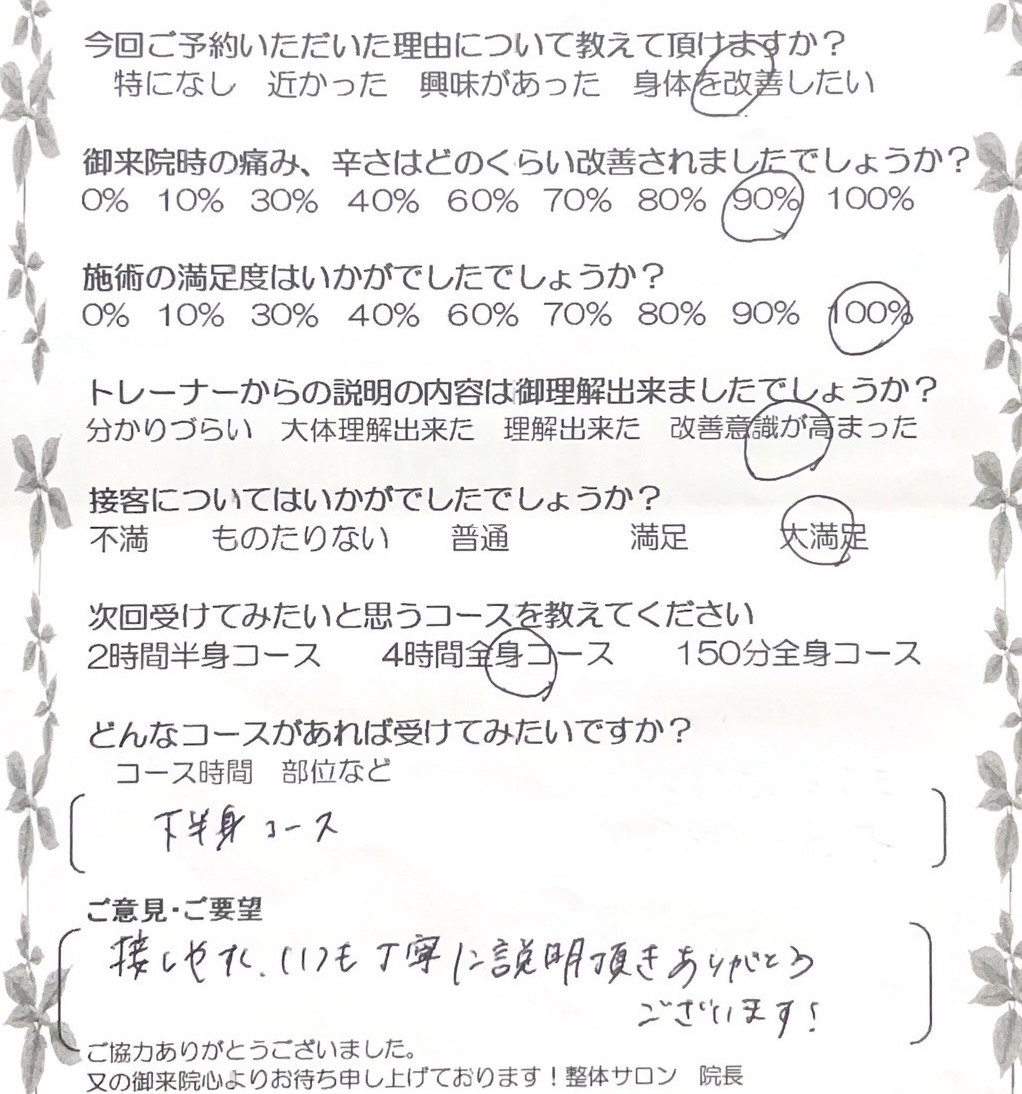 今回ご予約いただいた理由について教えて頂けますか？
特になし 近かった 興味があった 身体を改善したい
御来院時の痛み、辛さはどのくらい改善されましたでしょうか？
0% 10% 30% 40% 60% 70% 80% 90% 100%
施術の満足度はいかがでしたでしょうか？
0% 10% 30% 40% 60% 70% 80% 90% 100%
トレーナーからの説明の内容は御理解出来ましたでしょうか？
分かりづらい 大体理解出来た 理解出来た 改善意識が高まった
接客についてはいかがでしたでしょうか？
不満 ものたりない 普通 満足 大満足
次回受けてみたいと思うコースを教えてください
2時間半身コース 4時間全身コース 150分全身コース
どんなコースがあれば受けてみたいですか？
コース時間 部位など
下半身コース
ご意見・ご要望
接しやすく、いつも丁寧に説明頂きありがとう
ございます！
ご協力ありがとうございました。
又の御来院心よりお待ち申し上げております！整体サロン 院長